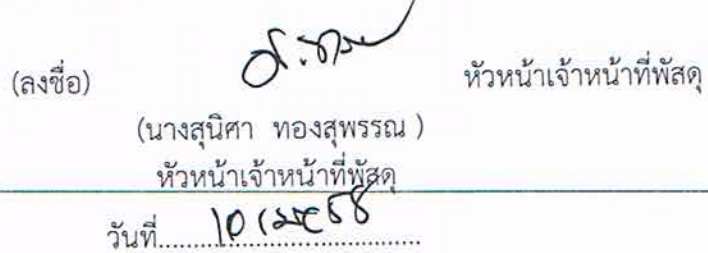 (ลงชื่อ) หัวหน้าเจ้าหน้าที่พัสดุ
(นางสุนิศา ทองสุพรรณ )
หัวหน้าเจ้าหน้าที่พัสดุ
วันที่..... 10